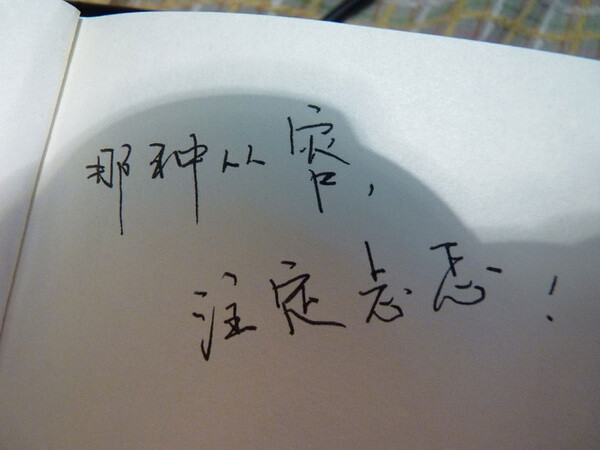 那种从容,
注定忐忑!